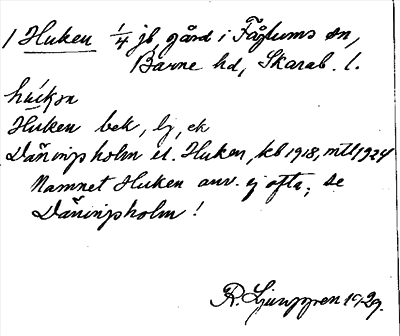 1 Huken 1/4 jb gård i Fåglums sn,
Barne hd, Skarab. l.
Huken bek, lj, ek
Däningsholm el. Huken, kb 1918, mtl 1924
Namnet Huken anv. ej ofta; se
Däningsholm!
R. Ljunggren 1929.